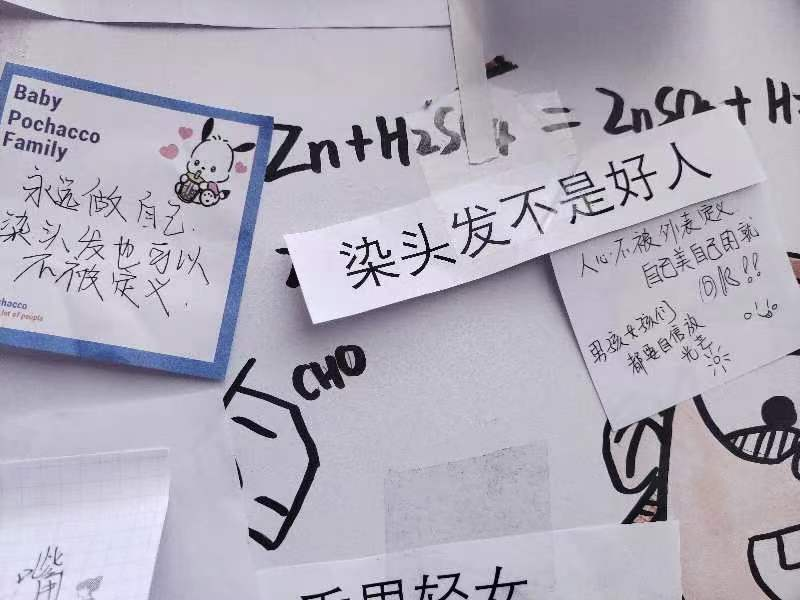 Baby
Pochacco
Family
永远做自己.
染头发也可以
不被定义.
chacco
lot of people
Zn+H2SO4 = ZnSO4+H
染头发不是好人
人心不被外表定义
自己美自己用就
OK!!
男孩女孩们
都要自信放
光芒
CHO
嘴
重男轻女